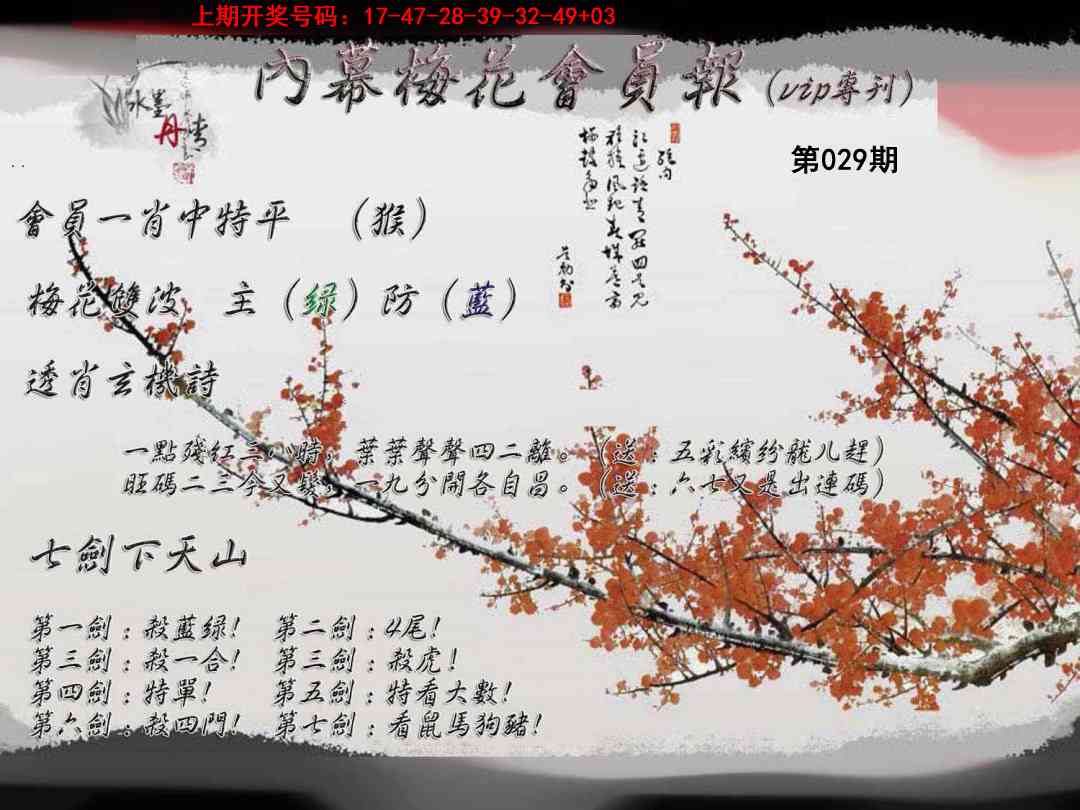 上期开奖号码：17-47-28-39-32-49+03
內幕梅花會員報（vip專刊）
水墨
丹情
第029期
會員一肖中特平 （猴）
梅花雙波 主（绿）防（藍）
透肖玄機詩
一點殘红三八時，葉葉聲聲四二離。（送：五彩繽纷龍儿趕）
旺碼二三今又發，一九分開各自昌。（送：六七又是出連碼）
七劍下天山
第一劍：殺藍绿！ 第二劍：4尾！
第三劍：殺一合！ 第三劍：殺虎！
第四劍：特單！ 第五劍：特看大數！
第六劍：殺四門！ 第七劍：看鼠馬狗豬！